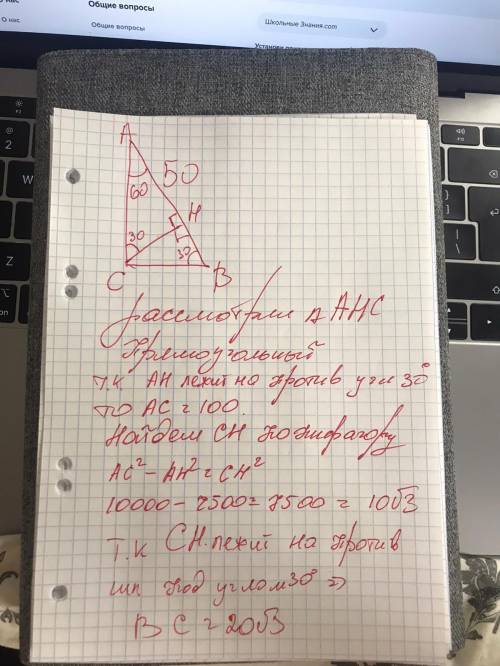 О нас
Общие вопросы
О нас
Общие вопросы
Школьные Знания.com
A
60
50
H
30
30
C
B
рассмотрим △ AHC
прямоугольный
т.к AH лежит на против угла 30°
то AC = 100.
Найдем CH по пифагору
AC² - AH² = CH²
10000 - 2500 = 7500 = 10√3
Т.К CH лежит на против
под углом 30° ⇒
BC = 20√3